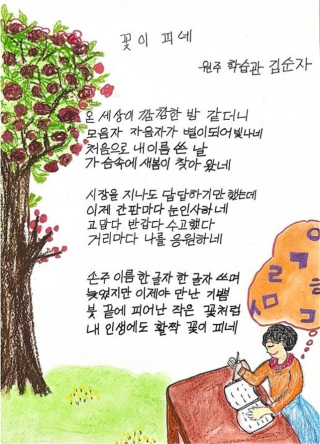 꽃이 피네
원주 학습관 김순자
온 세상이 깜깜한 밤 같더니
모음자 자음자가 별이되어빛나네
처음으로 내이름 쓴 날
가슴속에 새봄이 찾아 왔네
시장을 지나도 답답하기만 했는데
이제 간판마다 눈인사하네
고맙다 반갑다 수고했다
거리마다 나를 응원하네
손주 이름 한글자 한 글자 쓰며
늦었지만 이제야 만난 기쁨
붓 끝에 피어난 작은 꽃처럼
내 인생에도 활짝 꽃이 피네